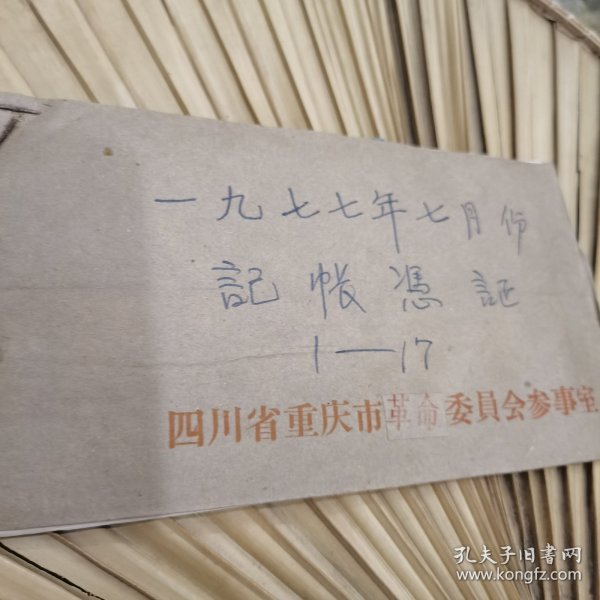 一九七七年七月份
記帐憑証
1—17
四川省重庆市革命委員会参事室
孔夫子旧书网
www.kongfz.com